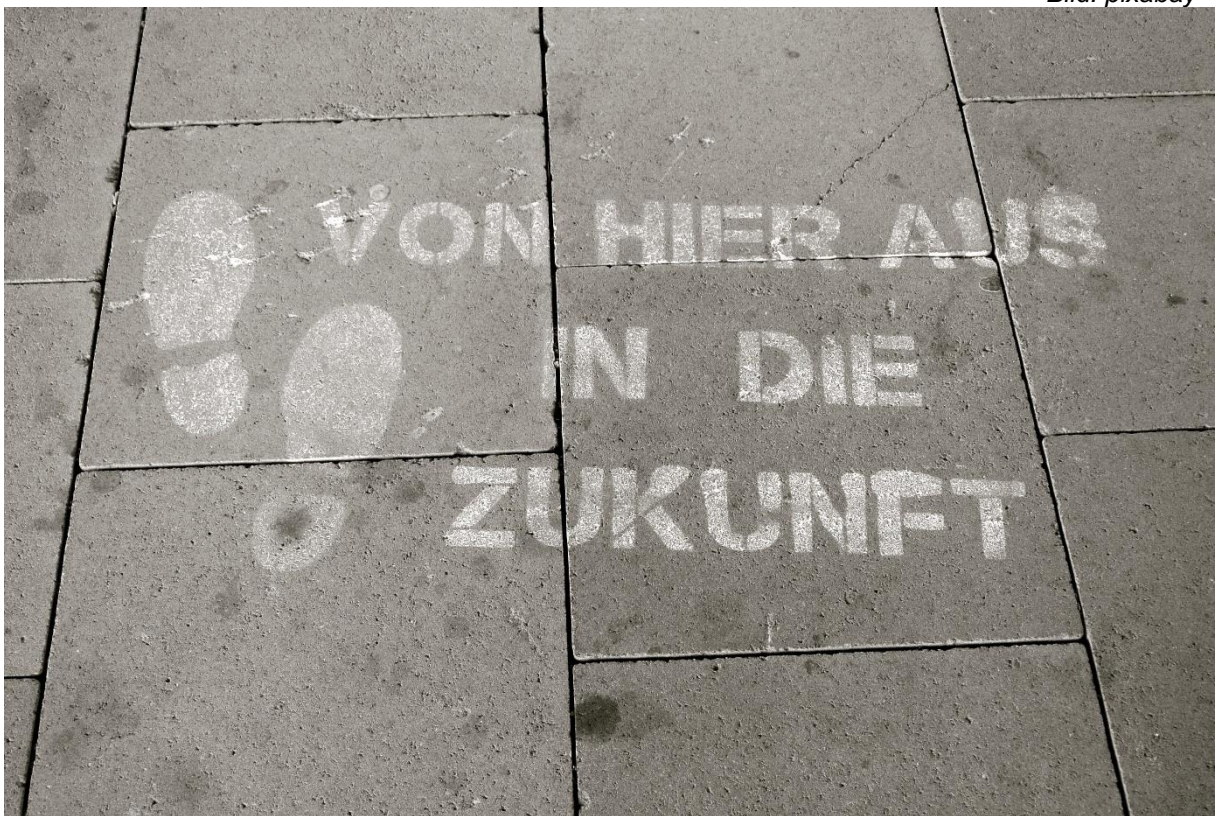 Bild: pixabay
VON HIER AUS
IN DIE
ZUKUNFT